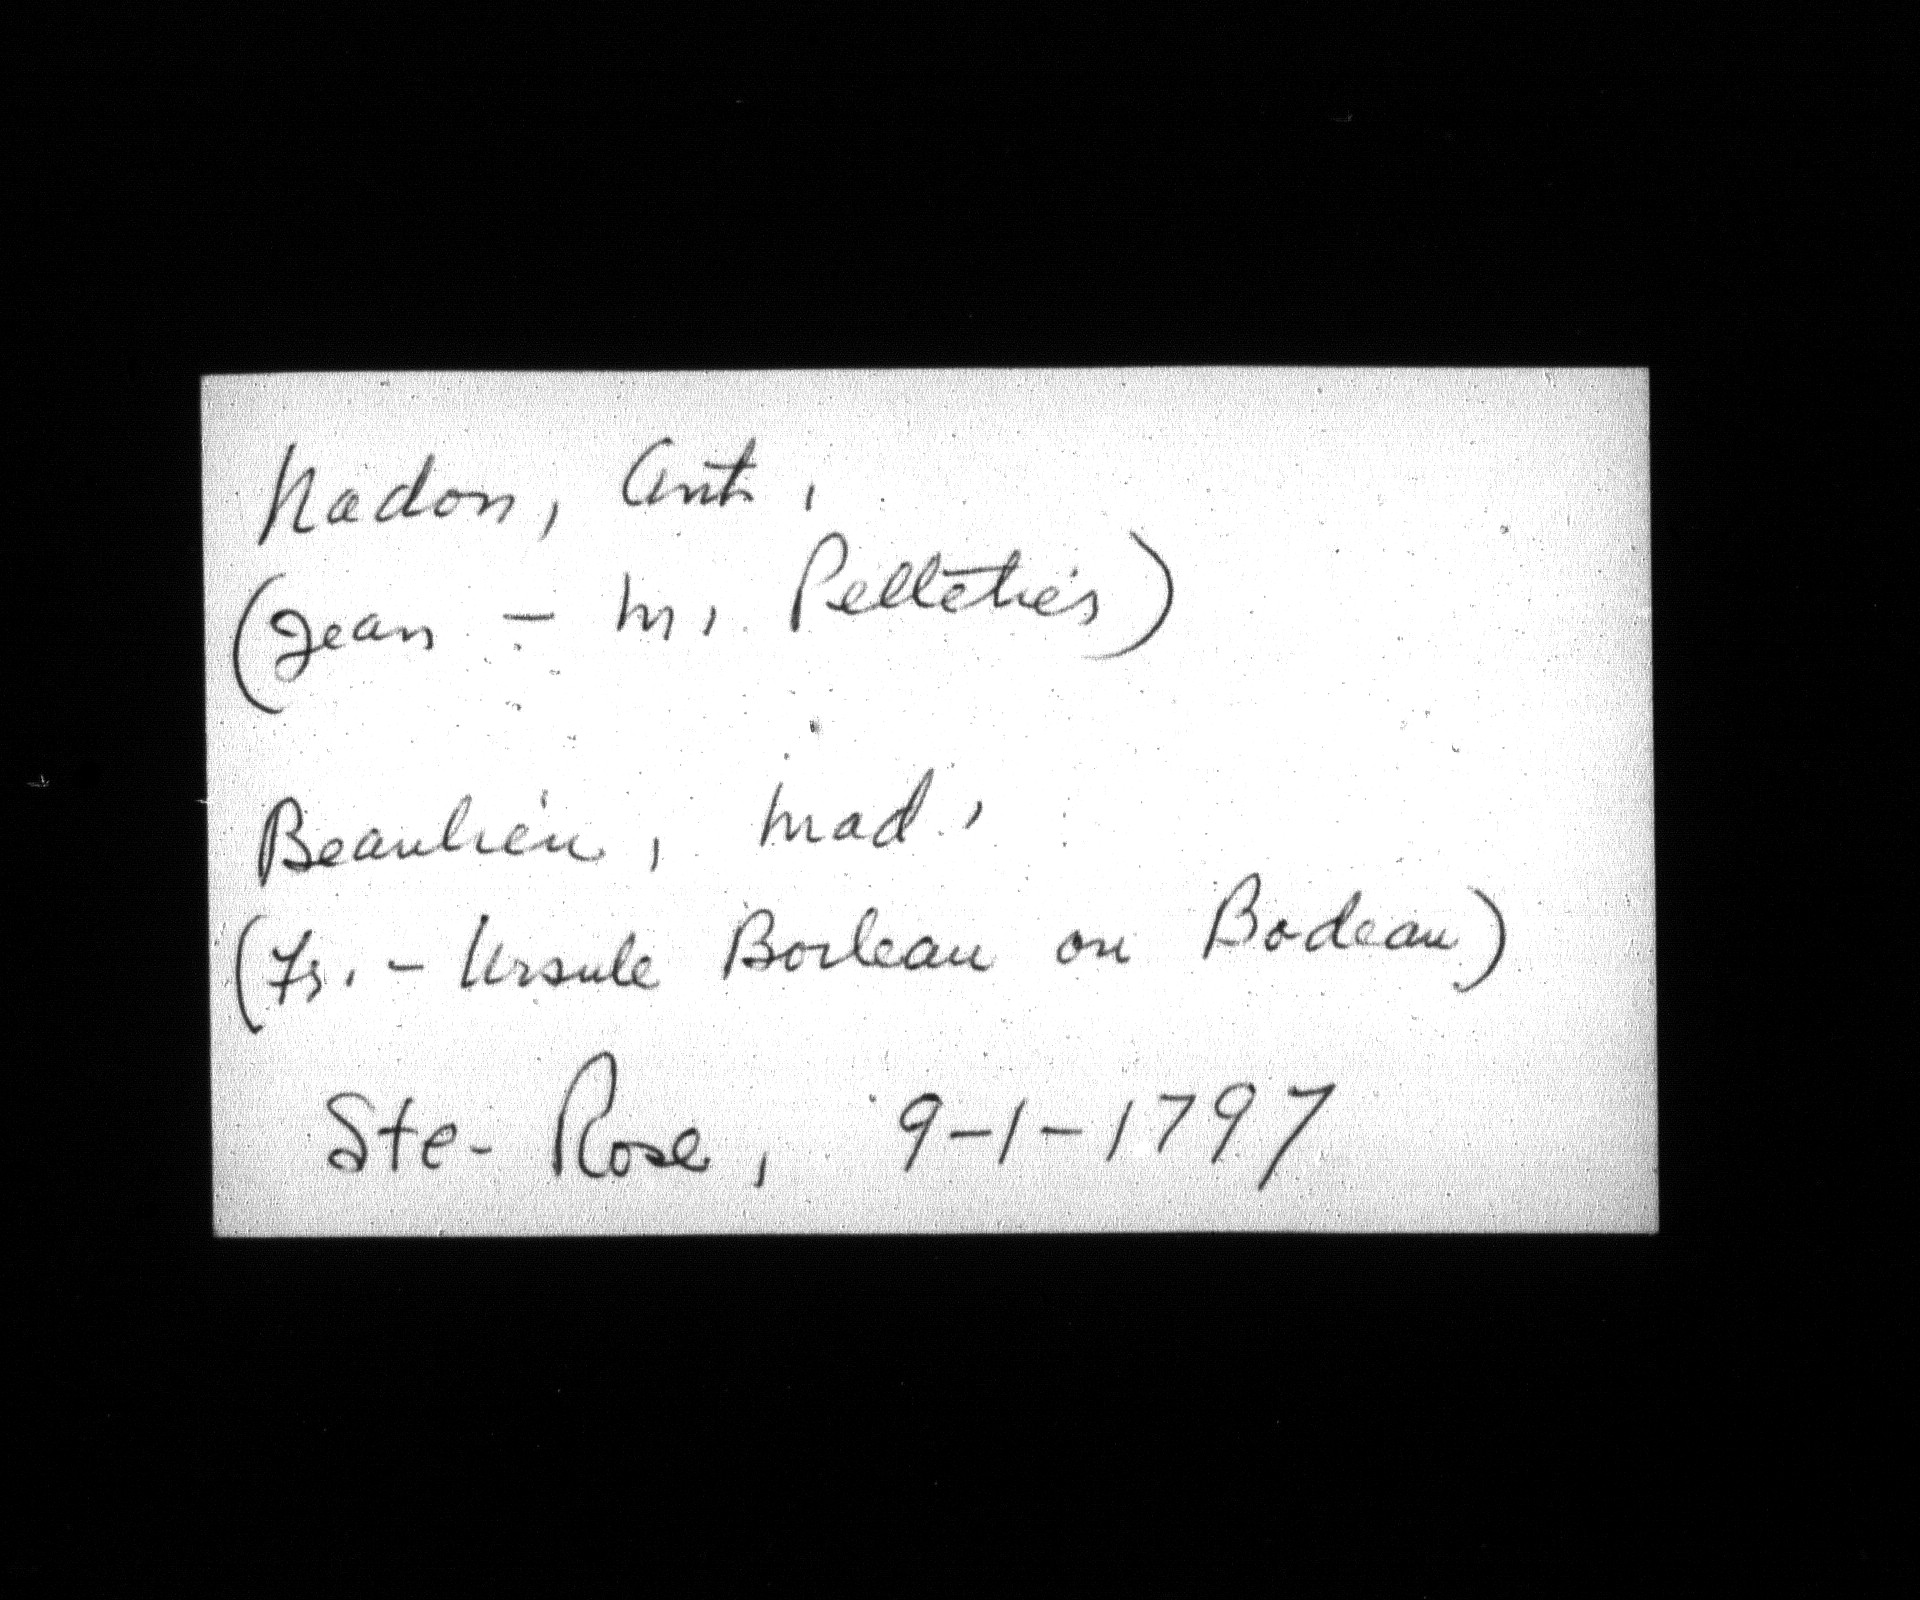 Nadon, Ant.,
(Jean - M. Pelletier)
Beaulieu, Mad.,
(Fs. - Ursule Boileau ou Bodeau)
Ste-Rose, 9-1-1797